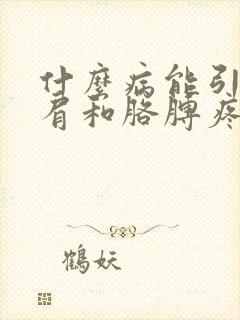 什麼病能引
肩和胳脾疼
鶴妖